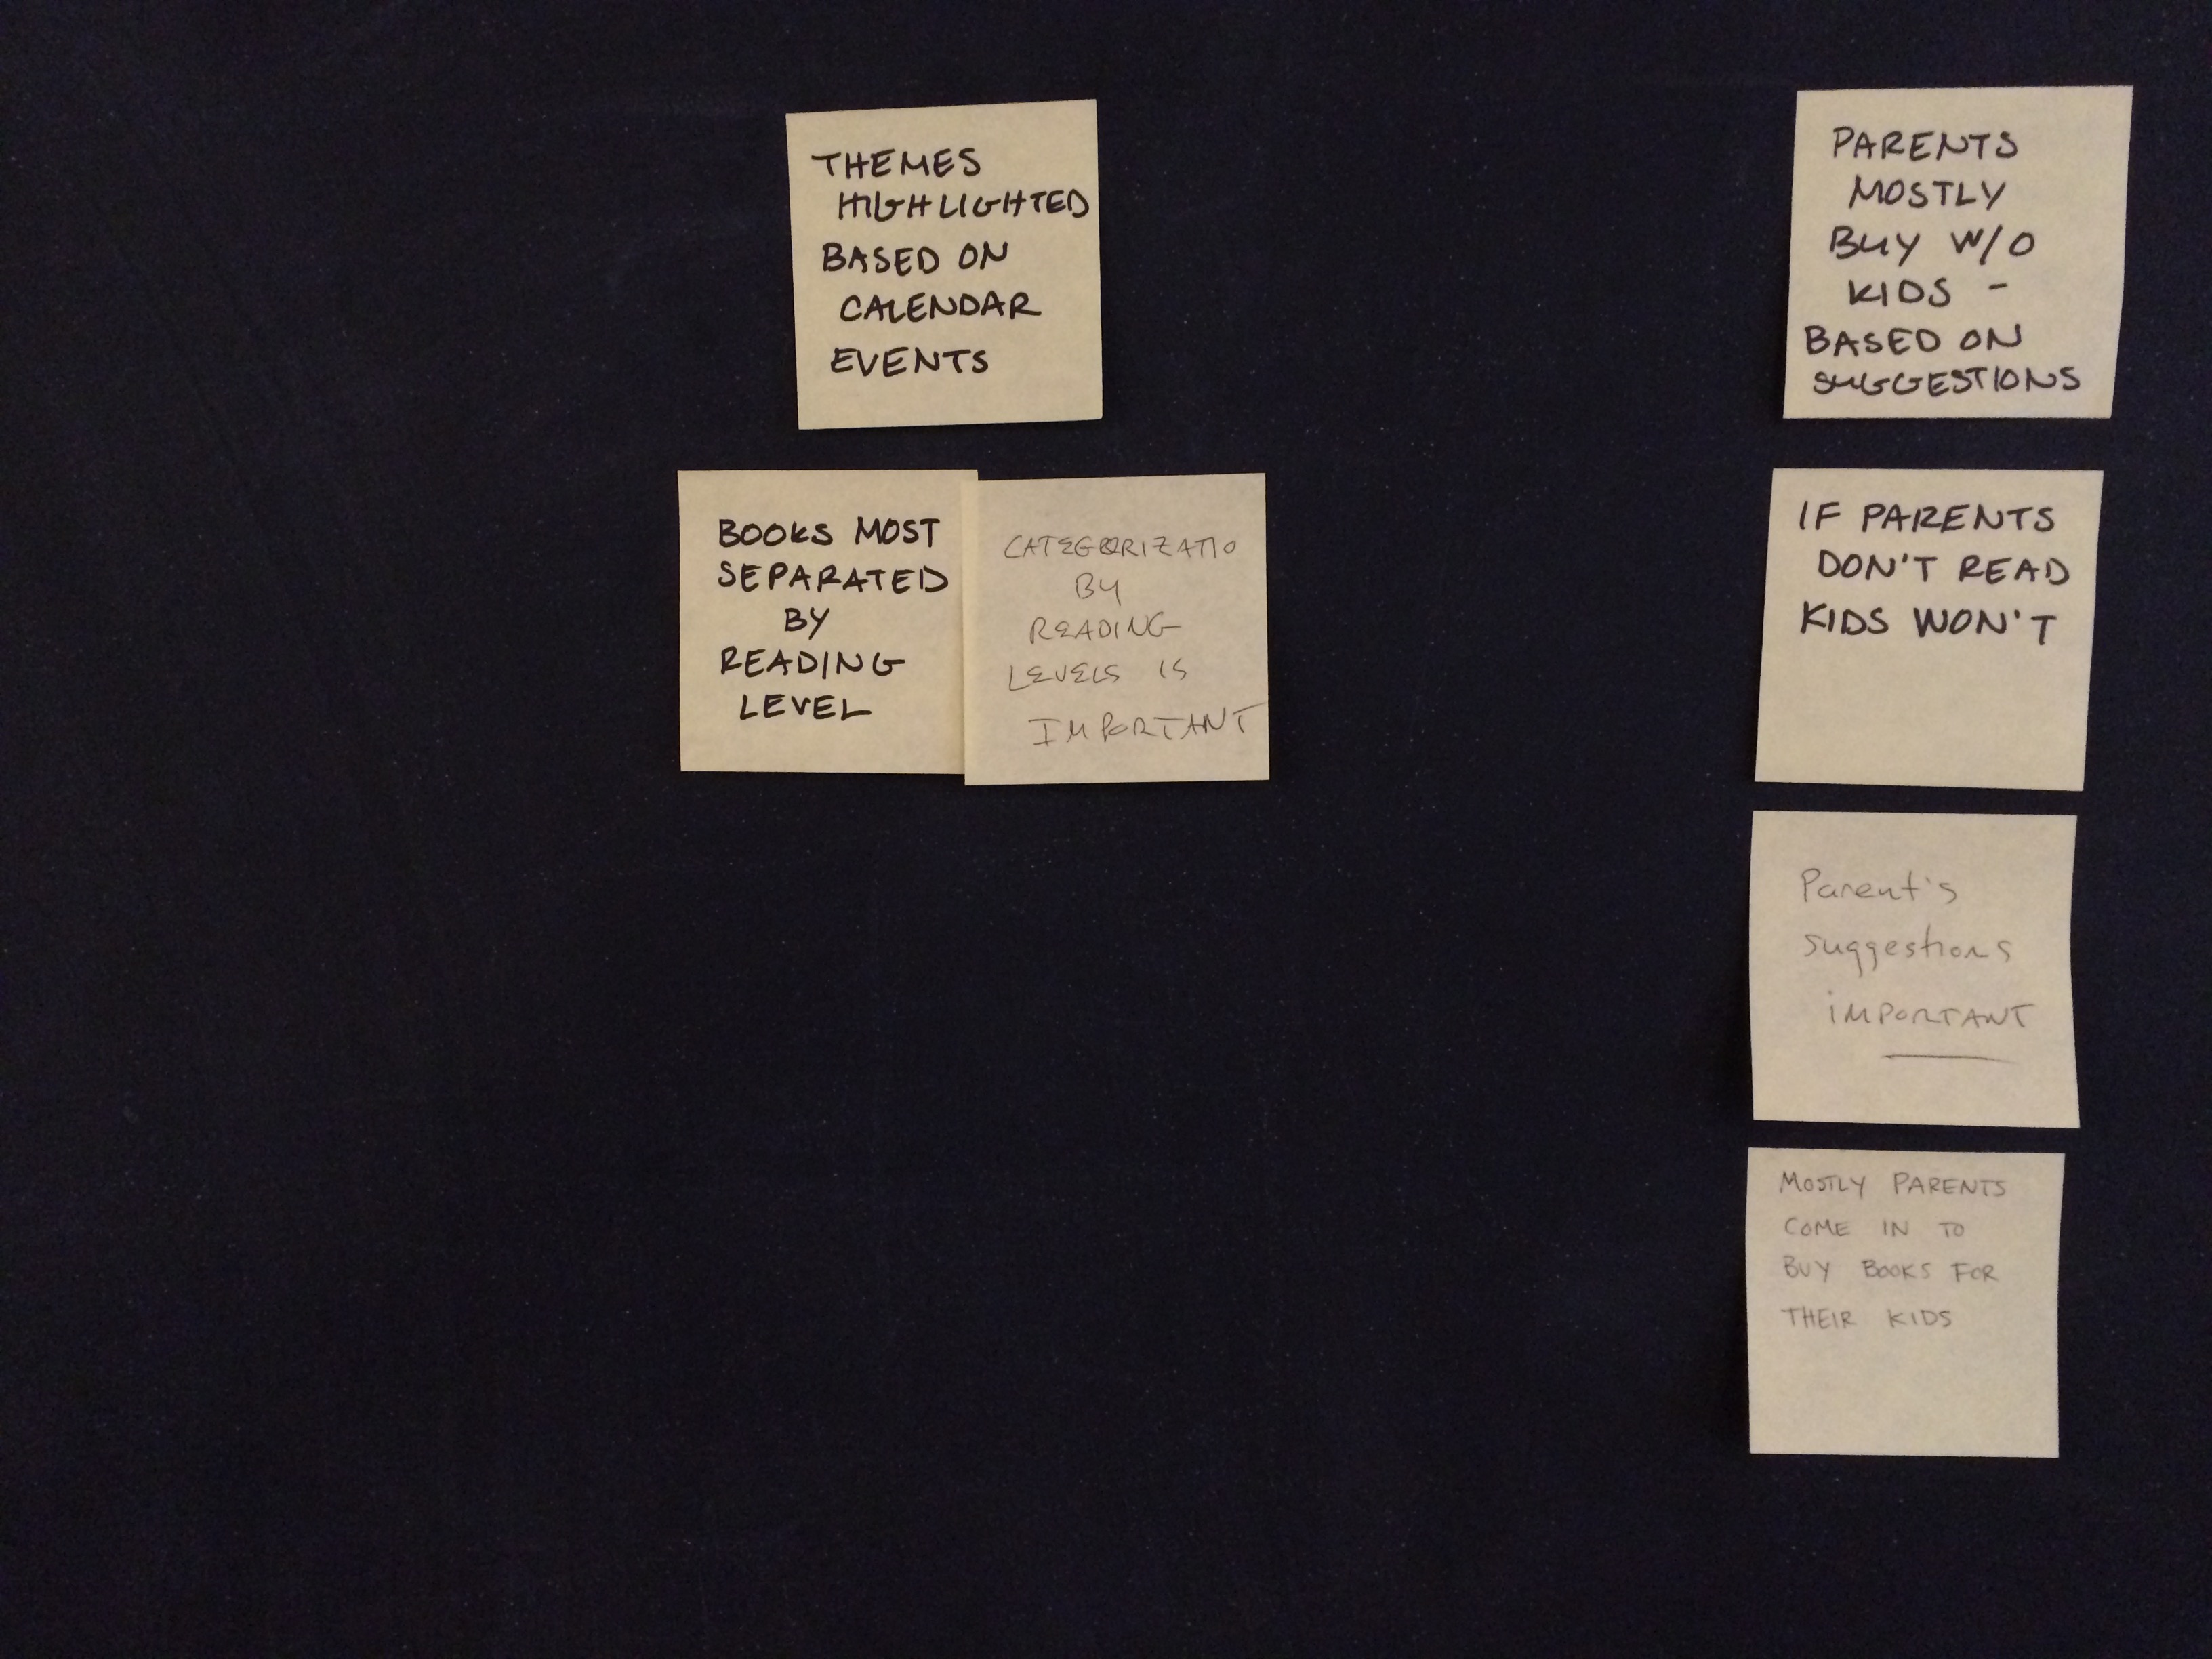 THEMES
HIGHLIGHTED
BASED ON
CALENDAR
EVENTS
BOOKS MOST
SEPARATED
BY
READING
LEVEL
CATEGORIZATIO
BY
READING
LEVELS IS
IMPORTANT
PARENTS
MOSTLY
BUY W/O
KIDS -
BASED ON
SUGGESTIONS
IF PARENTS
DON'T READ
KIDS WON'T
Parent's
suggestions
iMPORTANT
MOSTLY PARENTS
COME IN TO
BUY BOOKS FOR
THEIR KIDS